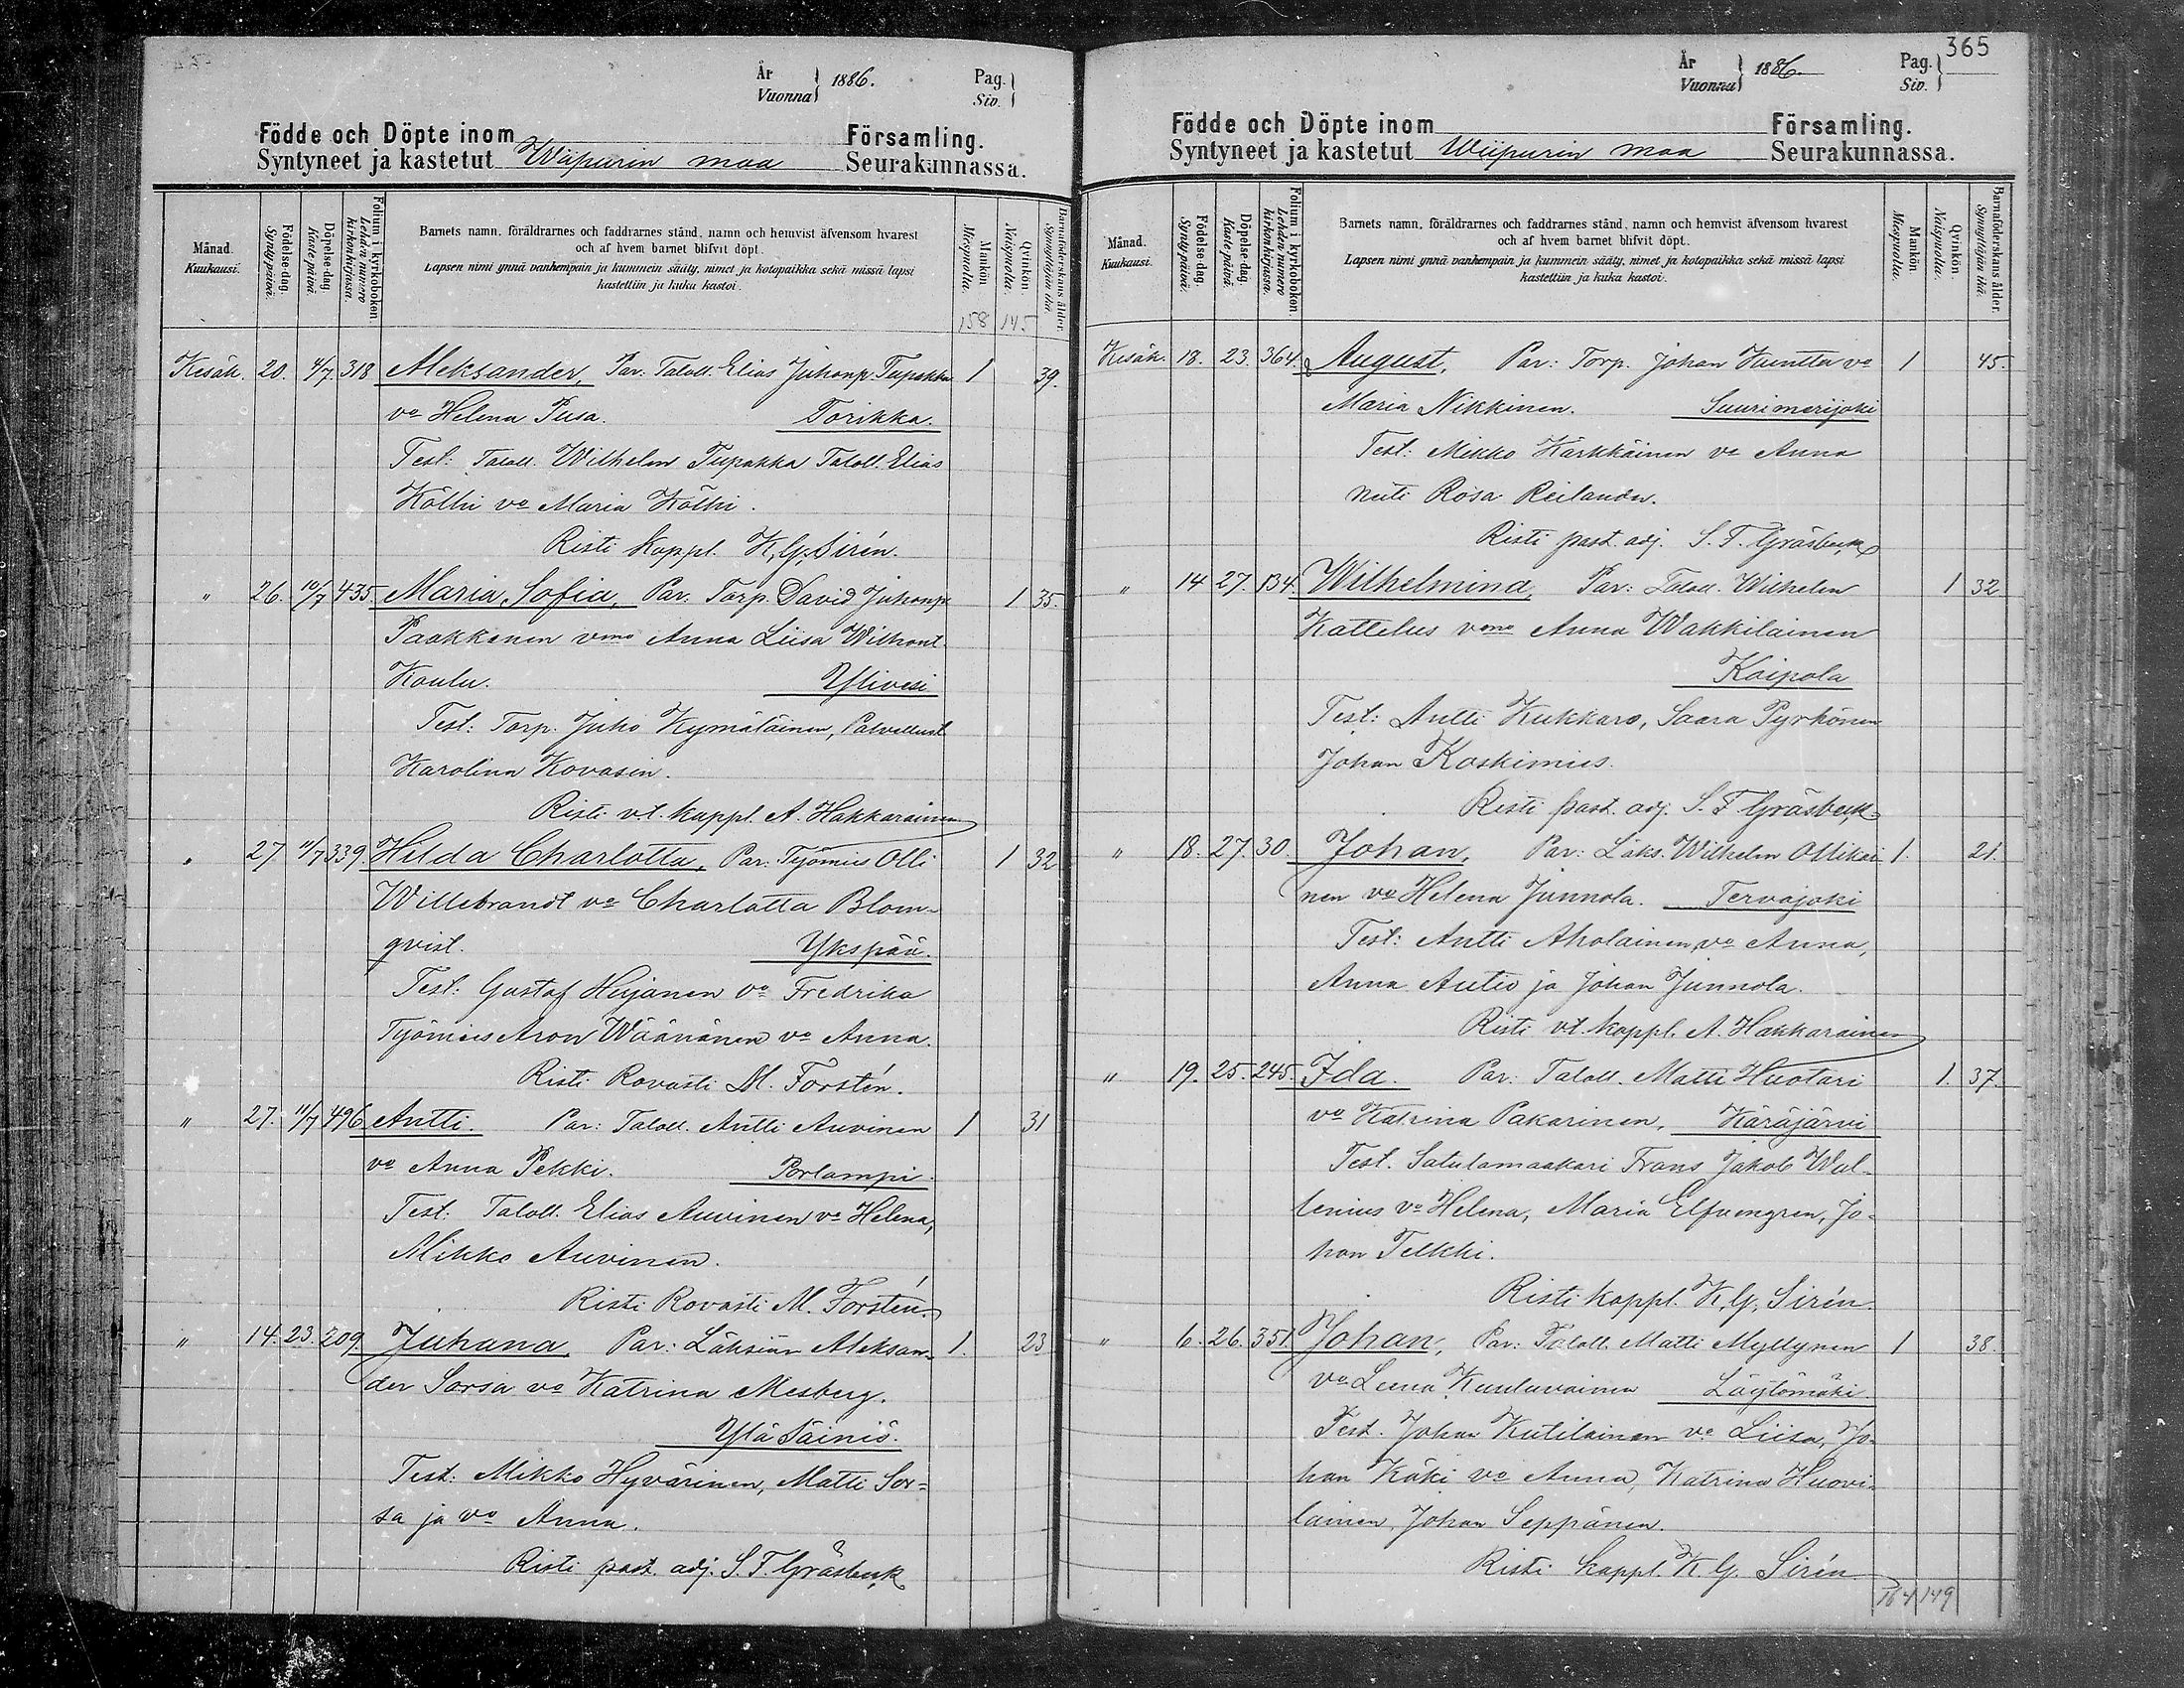 År
Vuonna } 1886.
Pag.
Siv. }
Födde och Döpte inom Församling.
Syntyneet ja kastetut Wiipurin maa Seurakunnassa.
Månad.
Kuukausi.
Födelse-dag.
Syntypäivä.
Döpelse-dag.
Kastepäivä.
Folium i kyrkoboken.
Lehden numero kirkonkirjassa.
Barnets namn, föräldrarnes och faddrarnes stånd, namn och hemvist äfvensom hvarest
och af hvem barnet blifvit döpt.
Lapsen nimi ynnä vanhempain ja kummein sääty, nimet ja kotopaikka sekä missä lapsi
kastettiin ja kuka kastoi.
Mankön.
Miespuolia.
Qvinkön.
Naispuolia.
Barnaföderskans ålder.
Synnyttäjän ikä.
158 145
Kesäk. 20. 4/7. 318 Aleksander, Par: Taloll. Elias Juhonp. Tupakka 1 39.
vo Helena Pusa. Torikka.
Test: Taloll. Wilhelm Tupakka Taloll. Elias
Kölhi vo Maria Kölhi.
Risti kappl. K. G. Sirén.
" 26. 10/7 435 Maria Sofia, Par. Torp. David Juhonp.
1 35.
Paakkanen vmo Anna Liisa Wilhont.
Koulu. Ylivesi
Test: Torp. Juho Kymäläinen, Palvellust
Karolina Kovasin.
Risti v.t. kappl. A. Hakkarainen
" 27 11/7 339 Hilda Charlotta, Par: Työmies Olli 1 32
Willebrandt vo Charlotta Blom-
qvist. Ykspää.
Test: Gustaf Hujanen vo Fredrika
Työmies Aron Wäänänen vo Anna.
Risti Rovasti M. Forstén.
" 27. 11/7 496 Antti. Par: Taloll. Antti Auvinen 1 31
vo Anna Pekki. Porlampi.
Test: Taloll. Elias Auvinen vo Helena,
Mikko Auvinen.
Risti Rovasti M. Forstén.
" 14. 23. 209. Juhana, Par: Läksiän Aleksan- 1. 23
der Sorsa vo Katrina Mesberg.
Ylä Säiniö.
Test: Mikko Hyvärinen, Matti Sor=
sa ja vo Anna.
Risti past. adj. S. F. Gråsbeck
365
År
Vuonna } 1886.
Pag.
Siv. }
Födde och Döpte inom Församling.
Syntyneet ja kastetut Wiipurin maa Seurakunnassa.
Månad.
Kuukausi.
Födelse-dag.
Syntypäivä.
Döpelse-dag.
Kastepäivä.
Folium i kyrkoboken.
Lehden numero kirkonkirjassa.
Barnets namn, föräldrarnes och faddrarnes stånd, namn och hemvist äfvensom hvarest
och af hvem barnet blifvit döpt.
Lapsen nimi ynnä vanhempain ja kummein sääty, nimet ja kotopaikka sekä missä lapsi
kastettiin ja kuka kastoi.
Mankön.
Miespuolia.
Qvinkön.
Naispuolia.
Barnaföderskans ålder.
Synnyttäjän ikä.
Kesäk. 18. 23. 364. August, Par: Torp. Johan Kuntta vo 1 45.
Maria Nikkinen. Suurimerijoki
Test: Mikko Kärkkäinen vo Anna
neiti Rosa Reilander.
Risti past. adj. S. F. Gråsbeck
" 14 27. 134. Wilhelmina, Par: Taloll. Wilhelm 1 32
Kattelus vmo Anna Wakkilainen
Kaipola
Test: Antti Kukkaro, Saara Pyrhönen
Johan Koskimies.
Risti past. adj. S. F. Gråsbeck
" 18. 27. 30. Johan, Par: Läks. Wilhelm Ollikai- 1. 21.
nen vo Helena Junnola. Tervajoki
Test: Antti Aholainen vo Anna,
Anna Autio ja Johan Junnola.
Risti vt. kappl. A. Hakkarainen
" 19. 25. 245. Ida. Par: Taloll. Matti Huotari 1. 37.
vo Katrina Pakarinen, Käräjärvi
Test. Satulamaakari Frans Jakob Wal-
lenius vo Helena, Maria Elfvengren, Jo-
han Telkki.
Risti kappl. K. G. Sirén.
" 6. 26. 351. Johan, Par: Taloll. Matti Myllynen 1 38.
vo Leena Kuuluvainen Löytömäki
Test. Johan Kutilainen vo Liisa, Jo-
han Käki vo Anna, Katrina Huovi-
lainen, Johan Seppänen.
Risti kappl. K. G. Sirén
164 149